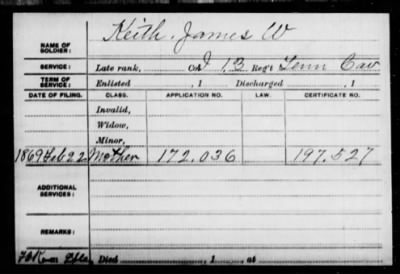 Keith, James W
NAME OF SOLDIER:
SERVICE: Late rank, Co. I 13 Reg't Tenn Cav
TERM OF SERVICE: Enlisted , 1 Discharged , 1
DATE OF FILING. CLASS. APPLICATION NO. LAW. CERTIFICATE NO.
Invalid,
Widow,
Minor,
1869 Feb 22 Mother 172.036 197.527
ADDITIONAL SERVICES:
REMARKS:
Died , 1 , at